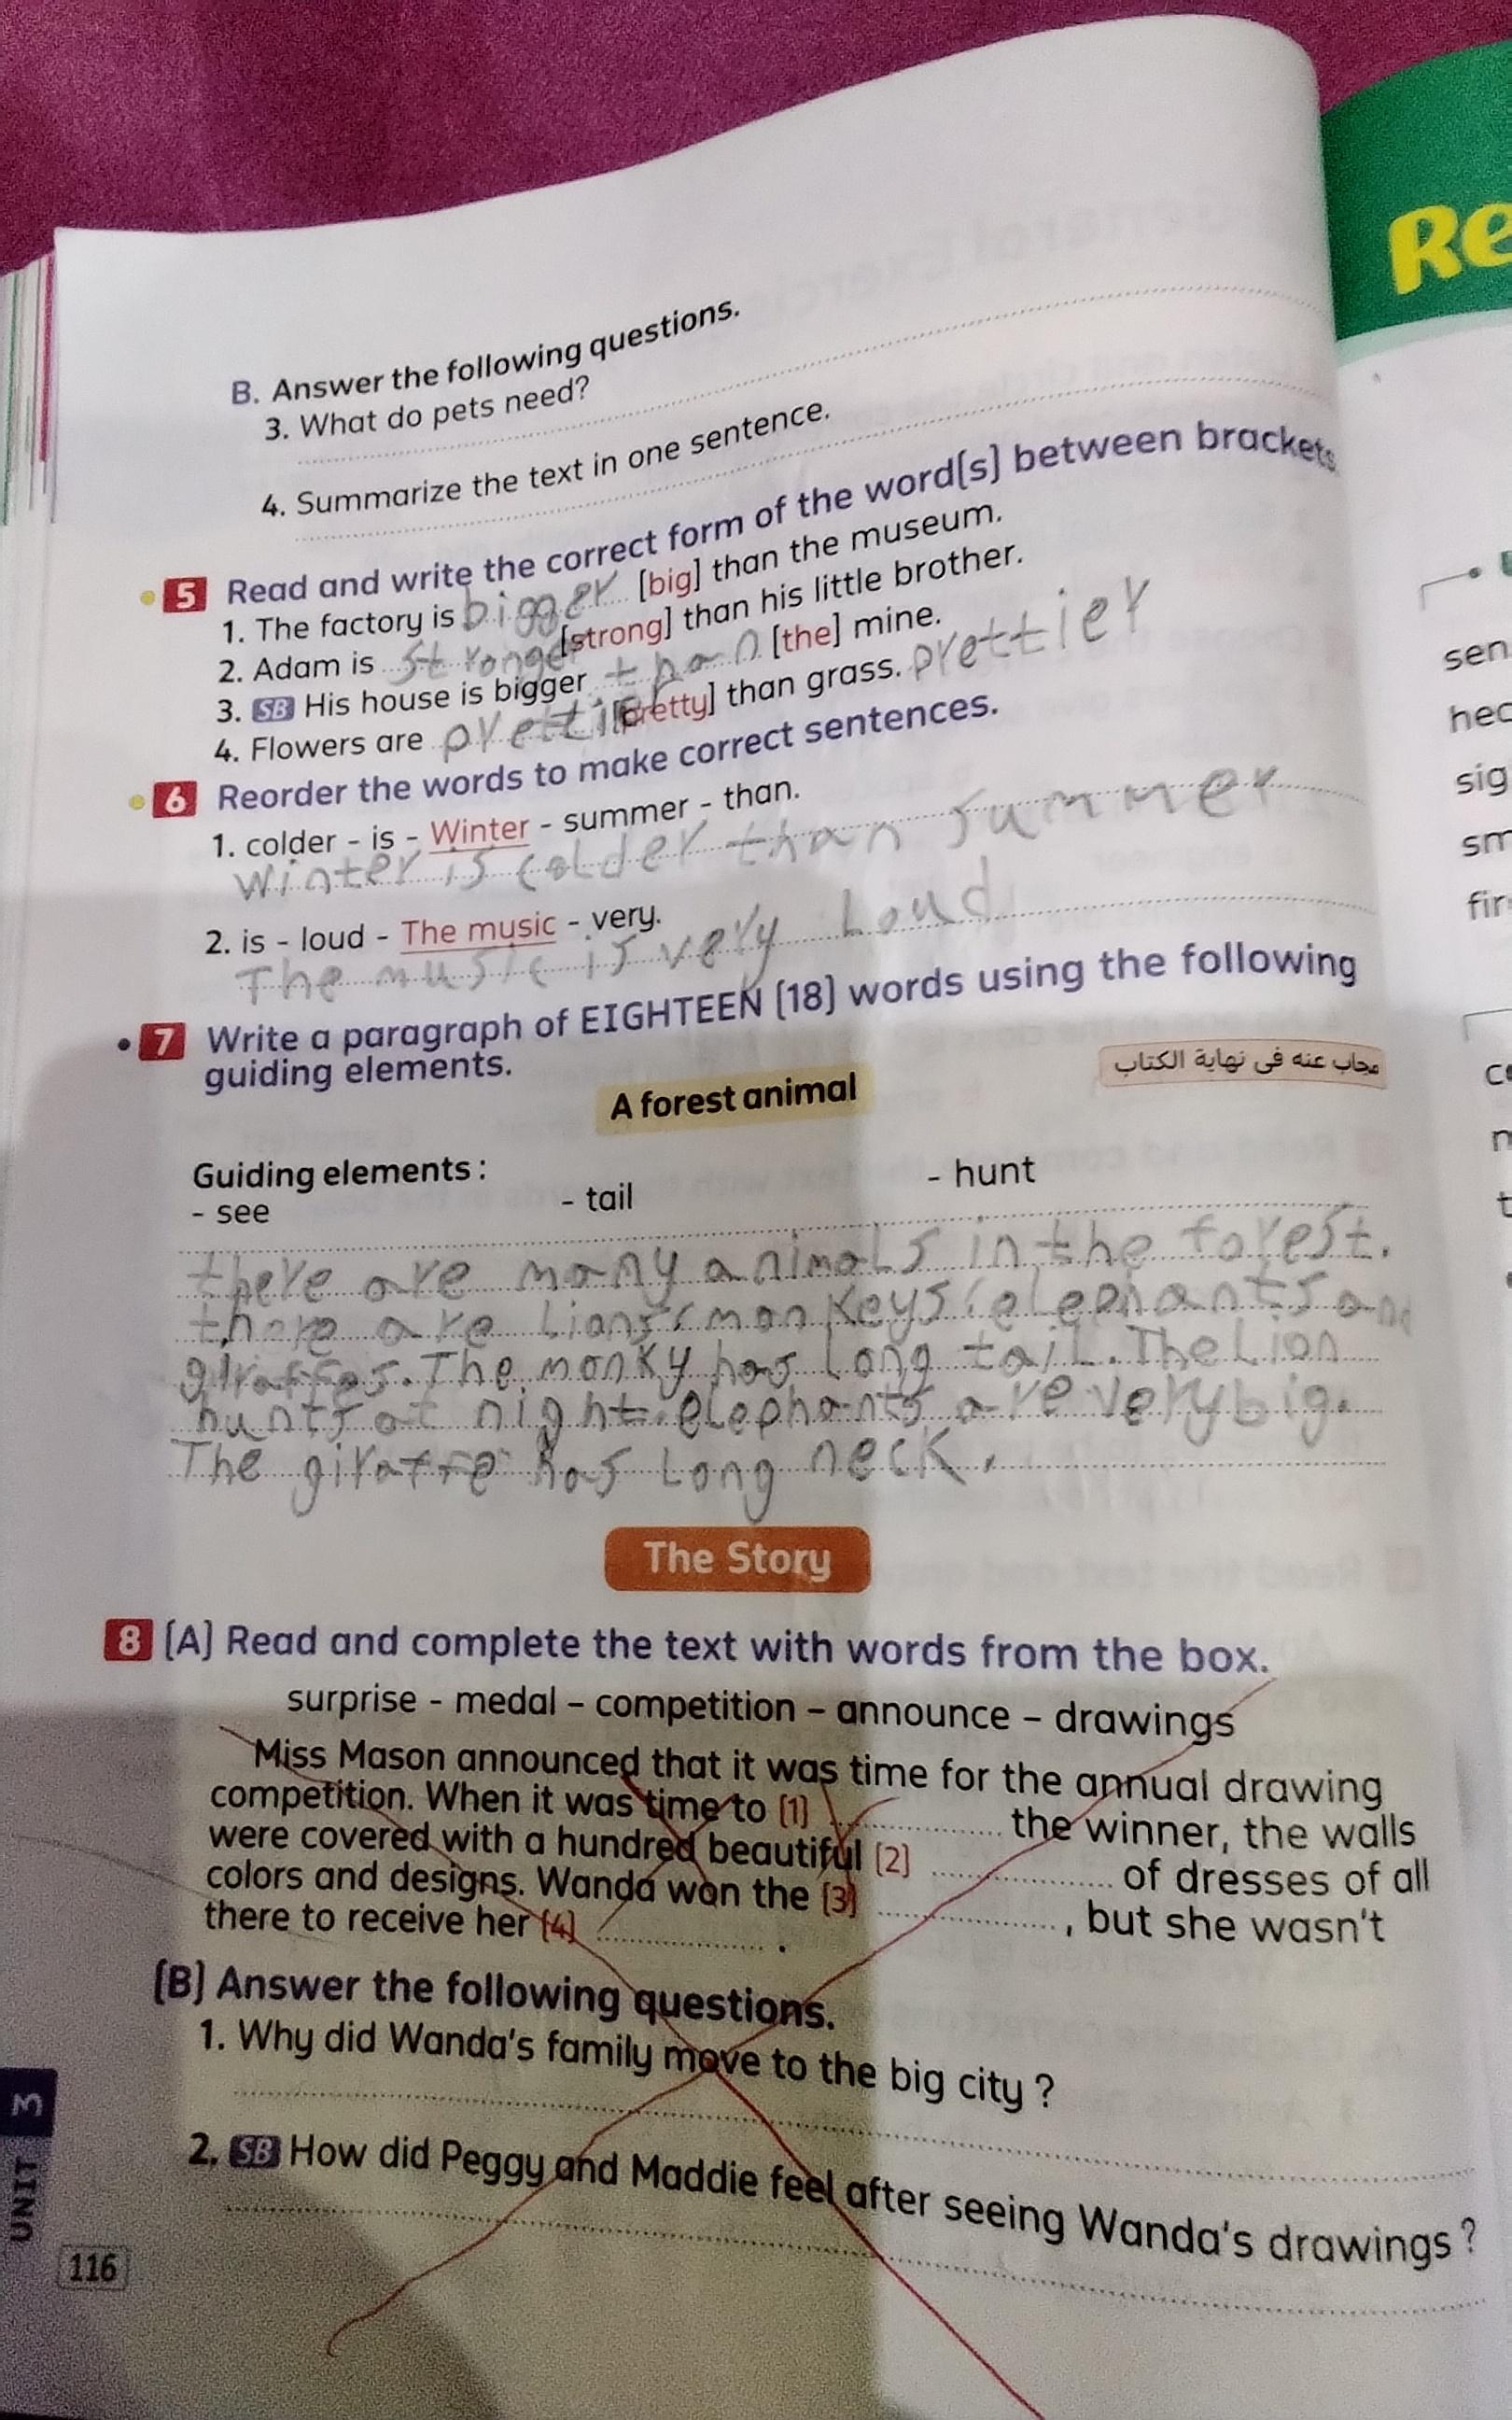 Re
B. Answer the following questions.
3. What do pets need?
4. Summarize the text in one sentence.
5 Read and write the correct form of the word(s) between brackets
1. The factory is bigger [big] than the museum.
2. Adam is stronger [strong] than his little brother.
3. SB His house is bigger than [the] mine.
4. Flowers are prettier [pretty] than grass. prettier
6 Reorder the words to make correct sentences.
1. colder - is - Winter - summer - than.
Winter is colder than summer
2. is - loud - The music - very.
The music is very Loud
7 Write a paragraph of EIGHTEEN (18) words using the following
guiding elements.
مجاب عنه في نهاية الكتاب
A forest animal
Guiding elements :
- see - tail - hunt
there are many animals in the forest.
there are Lions, monkeys, elephants and
giraffes. The monky has Long tail. The Lion
hunts at night. elephants are very big.
The giraffe has Long neck.
The Story
8 (A) Read and complete the text with words from the box.
surprise - medal - competition - announce - drawings
Miss Mason announced that it was time for the annual drawing
competition. When it was time to (1) ............ the winner, the walls
were covered with a hundred beautiful (2) ............ of dresses of all
colors and designs. Wanda won the (3) ............ , but she wasn't
there to receive her (4) ............ .
(B) Answer the following questions.
1. Why did Wanda's family move to the big city ?
2. SB How did Peggy and Maddie feel after seeing Wanda's drawings ?
UNIT 3
116
sen
hec
sig
sm
fir